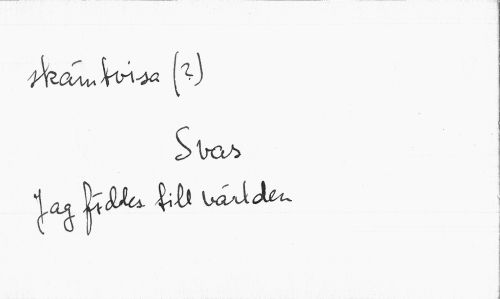 skämtvisa (?)
Svas
Jag föddes till världen